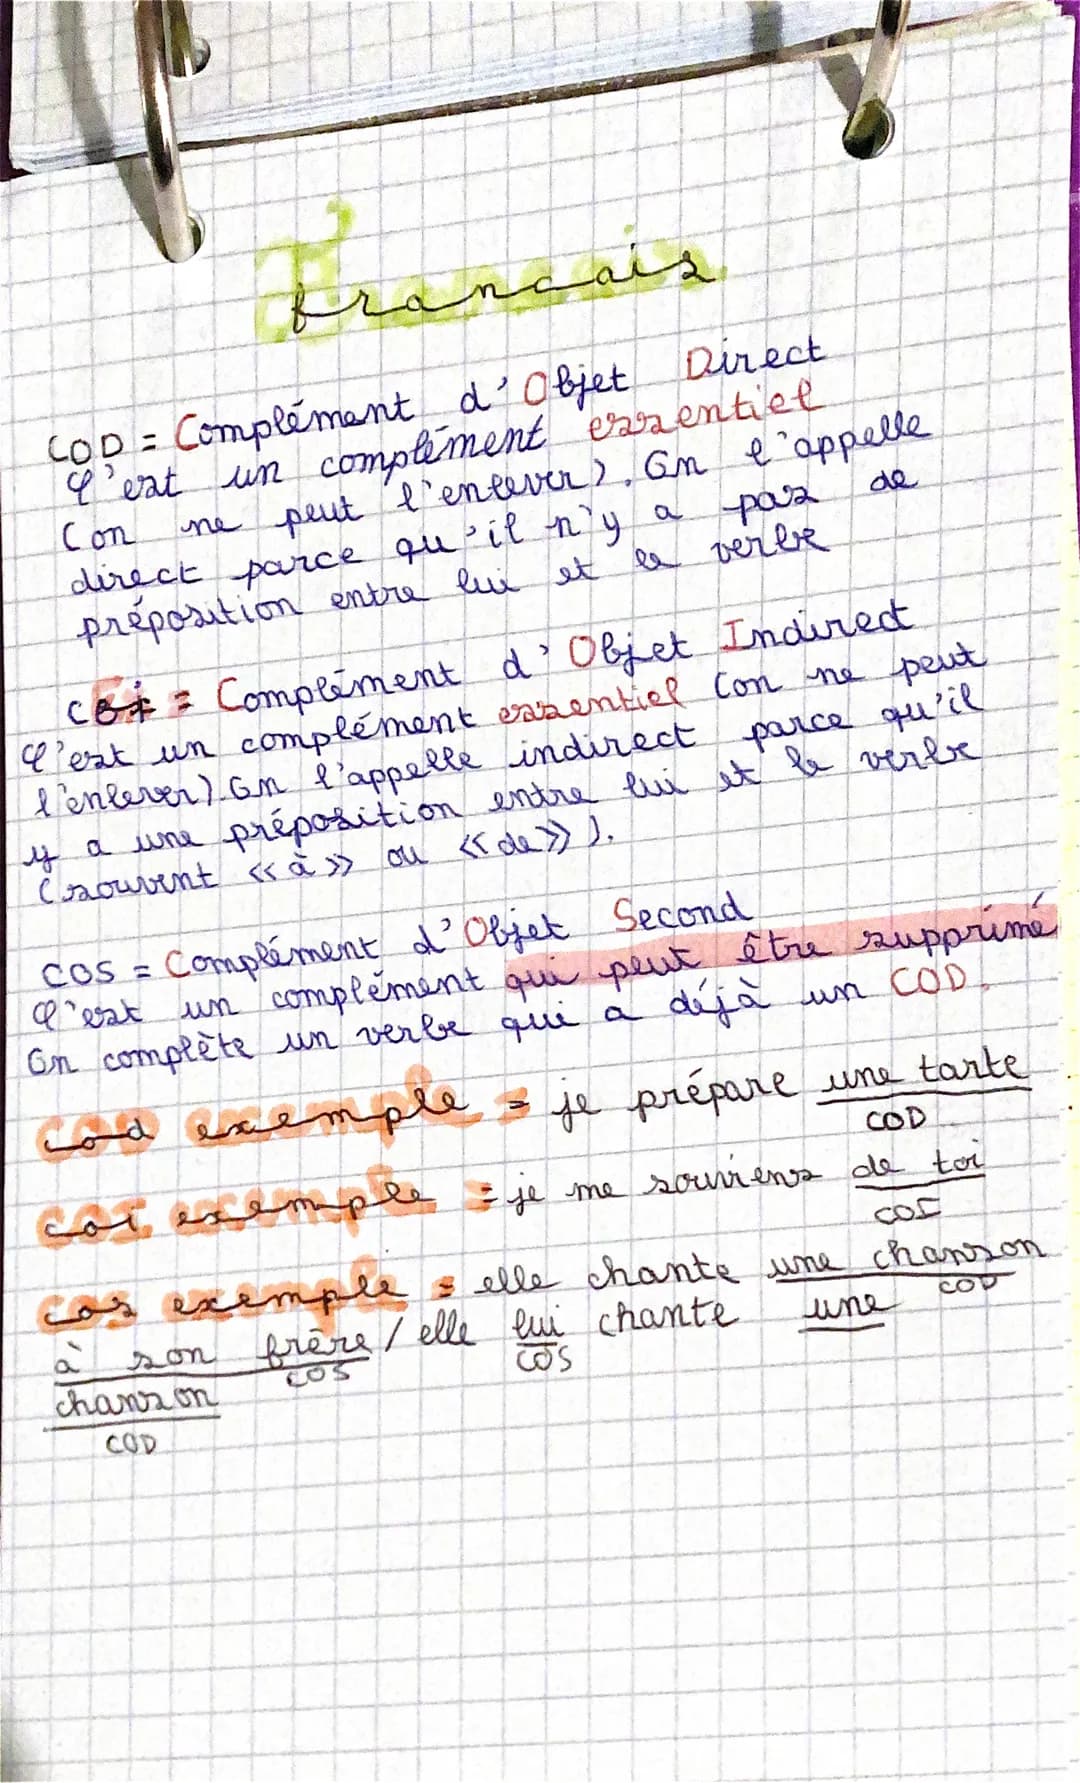 francais
COD = Complément d'Objet Direct
C'est un complément essentiel
(on ne peut l'enlever). On l'appelle
direct parce qu'il n'y a pas de
préposition entre lui et le verbe
COI = Complément d'Objet Indirect
C'est un complément essentiel (on ne peut
l'enlever). On l'appelle indirect parce qu'il
y a une préposition entre lui et le verbe
(souvent «à» ou «de»).
COS = Complément d'Objet Second
C'est un complément qui peut être supprimé
On complète un verbe qui a déjà un COD.
cod exemple = je prépare une tarte
COD
coi exemple = je me souviens de toi
COI
cos exemple = elle chante une chanson
COD
à son frère / elle lui chante une
COS COS
chanson
COD